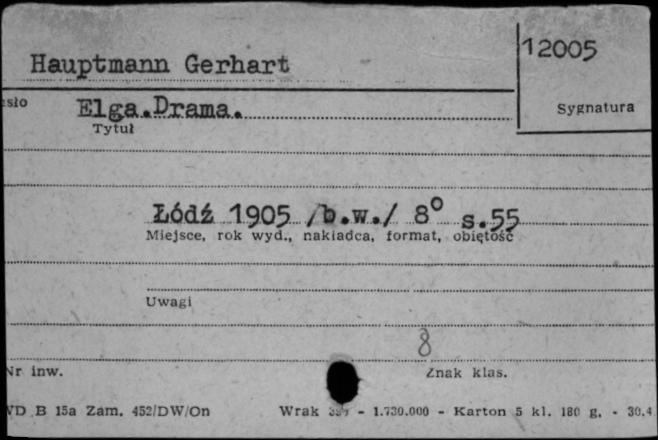 Hauptmann Gerhart
12005
Sygnatura
Elga.Drama.
Tytuł
Łódź 1905 /b.w./ 8° s.55
Miejsce, rok wyd., nakładca, format, objętość
Uwagi
8
Nr inw.
Znak klas.
B 15a Zam. 452/DW/On
Wrak - 1.730.000 - Karton 5 kl. 180 g. - 30.4